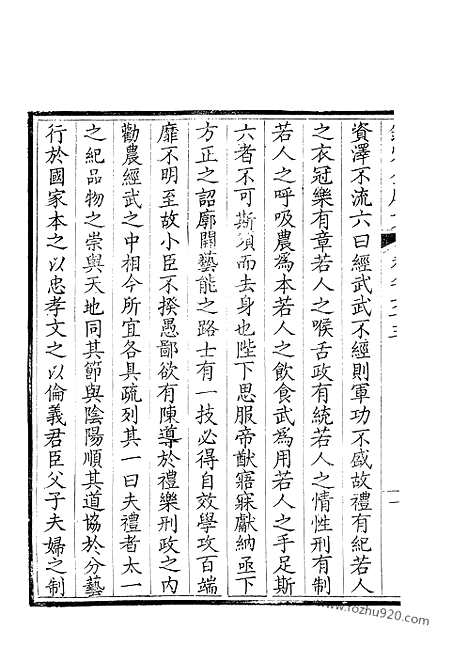 資澤不流六曰經武武不經則軍功不盛故禮有紀若人
之衣冠樂有章若人之喉舌政有統若人之情性刑有制
若人之呼吸農為本若人之飲食武為用若人之手足斯
六者不可斯須而去身也陛下思服帝猷寤寐獻納亟下
方正之詔廓開藝能之路士有一技必得自效學攻百端
靡不明至故小臣不揆愚鄙欲有陳導於禮樂刑政之内
勸農經武之中相今所宜各具疏列其一曰夫禮者太一
之紀品物之崇與天地同其節與陰陽順其道協於分藝
行於國家本之以忠孝文之以倫義君臣父子夫婦之制
www.fozhu920.com